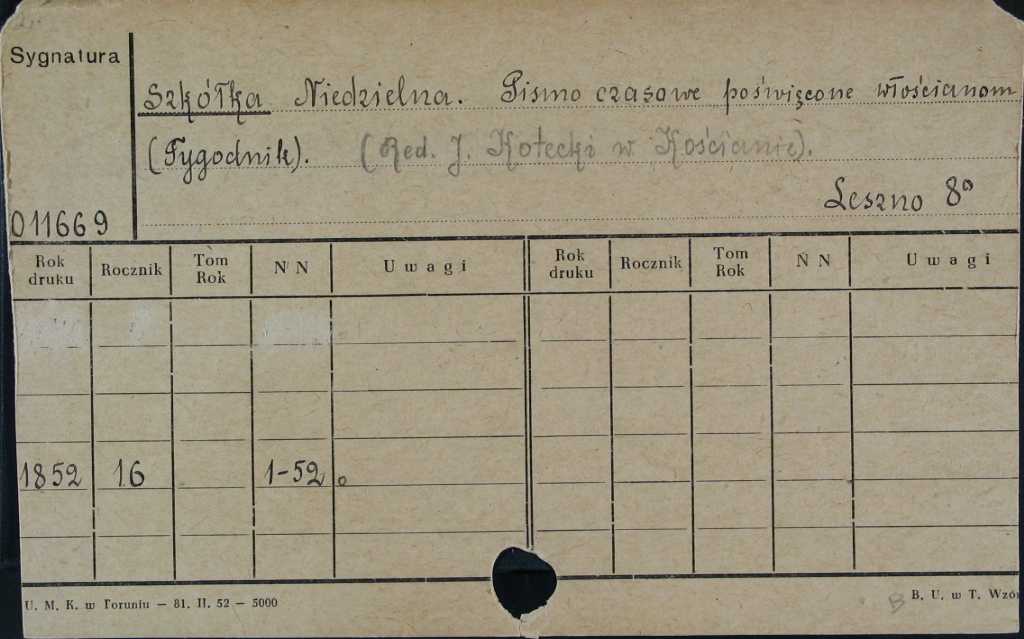 Sygnatura
Szkółka Niedzielna. Pismo czasowe poświęcone włościanom
(Tygodnik). (Red. J. Kotecki w Kościanie).
Leszno 8°
011669
Rok druku Rocznik Tom Rok N N Uwagi Rok druku Rocznik Tom Rok N N Uwagi
1852 16 1-52.
U. M. K. w Toruniu — 81. II. 52 — 5000
B B. U. w T. Wzór